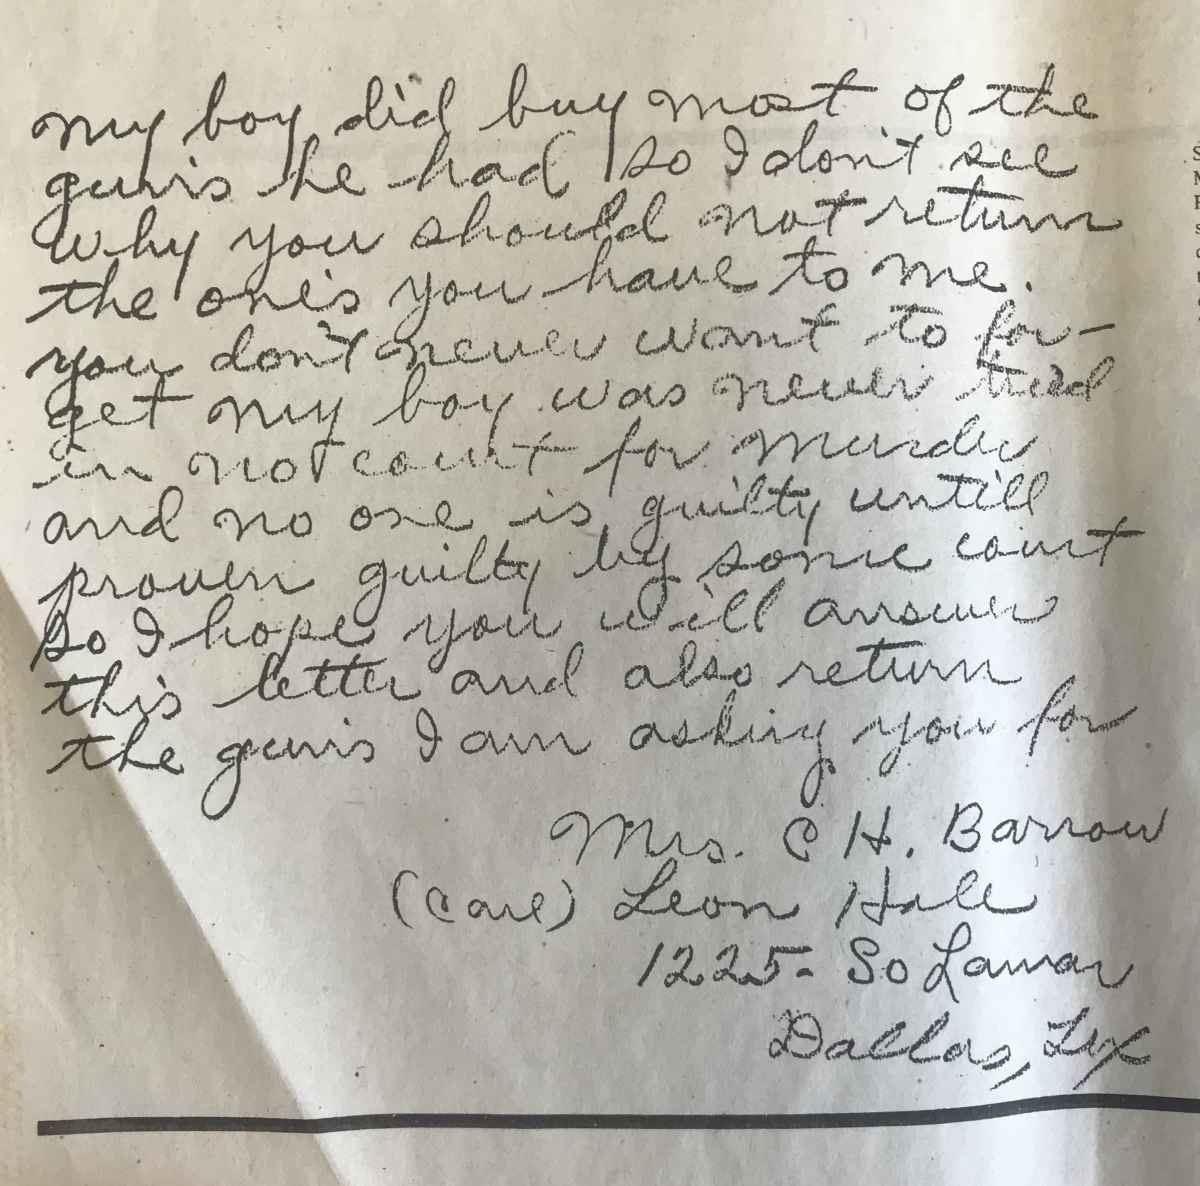 my boy did buy most of the
guns he had so I don't see
why you should not return
the one's you have to me.
you don't never want to for-
get my boy was never tried
in no court for murder
and no one is guilty untill
proven guilty by some court
so I hope you will answer
this letter and also return
the guns I am asking you for
Mrs. C H. Barrow
(Care) Leon Hale
1225- So Lamar
Dallas, Tex